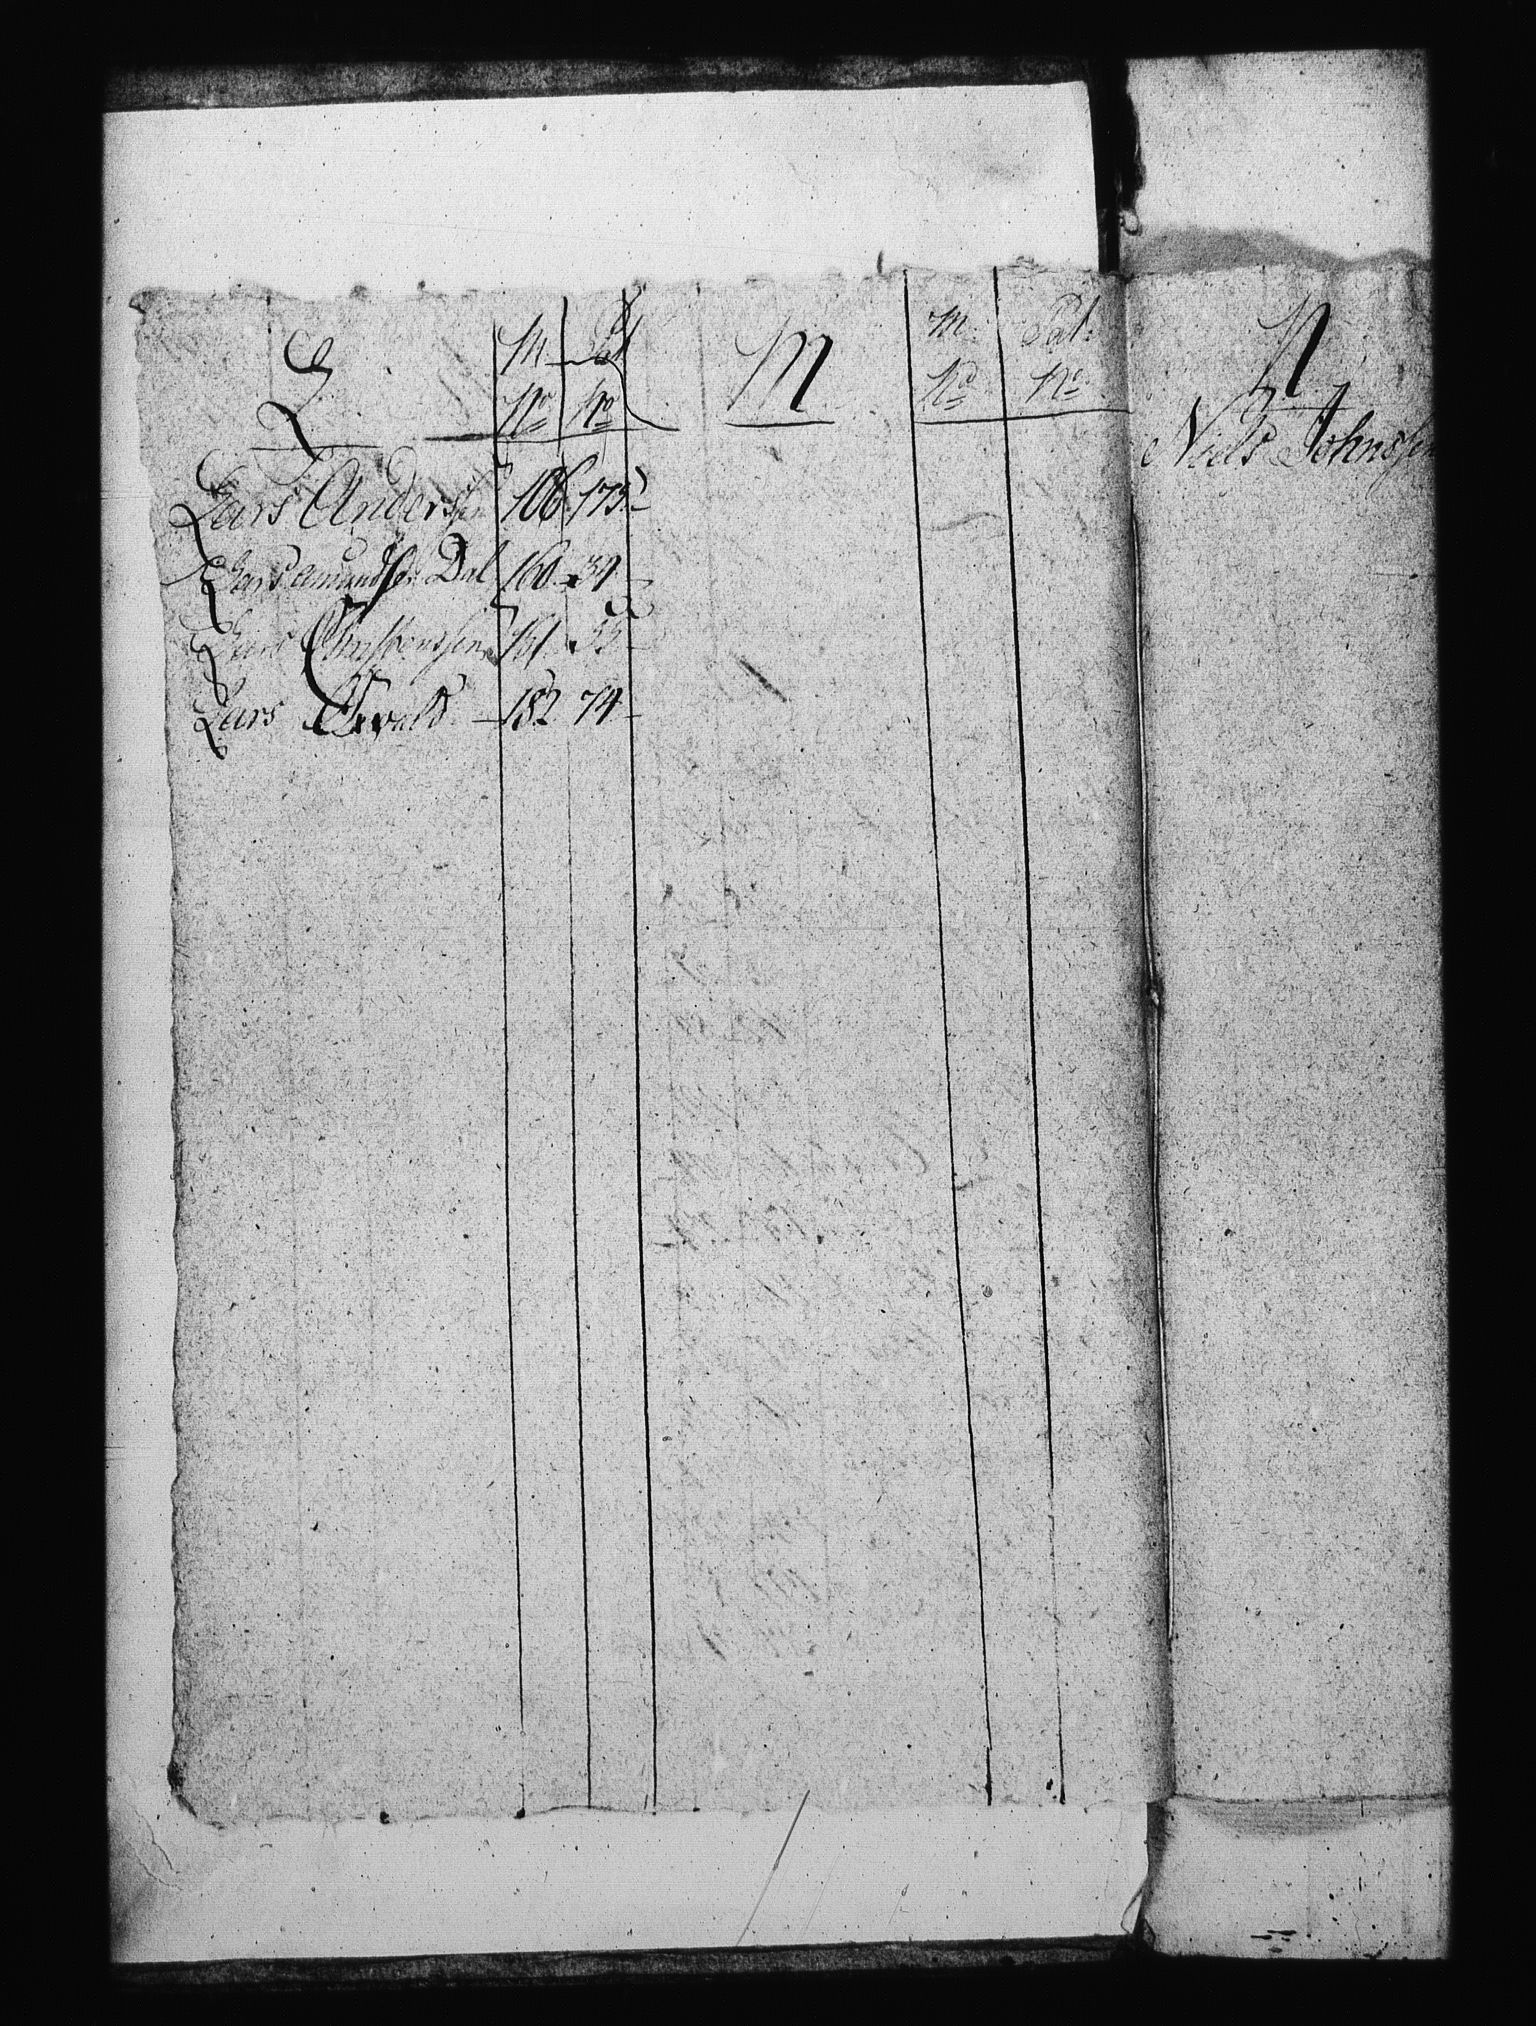 L M Pat
No No
Lars Andersen 106 175
Lars Amundsen Dal 160 34
Lars Christensen 161 35
Lars Ørvald 182 74
M M: Pat:
No No
N
Niels Johnsen